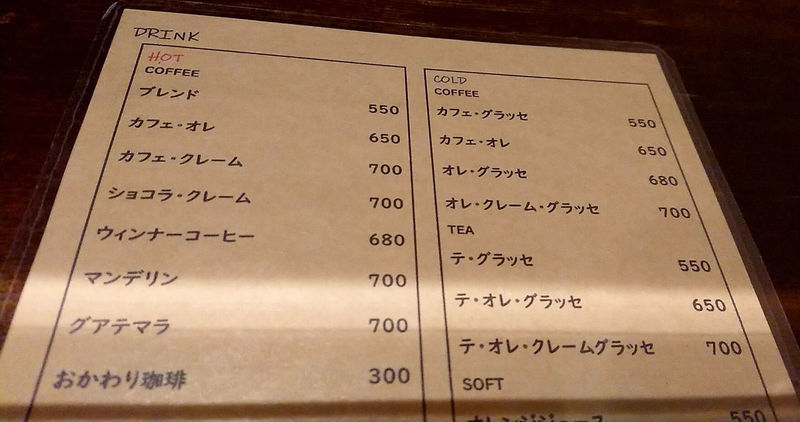 DRINK
HOT
COFFEE
ブレンド 550
カフェ・オレ 650
カフェ・クレーム 700
ショコラ・クレーム 700
ウィンナーコーヒー 680
マンデリン 700
グアテマラ 700
おかわり珈琲 300
COLD
COFFEE
カフェ・グラッセ 550
カフェ・オレ 650
オレ・グラッセ 680
オレ・クレーム・グラッセ 700
TEA
テ・グラッセ 550
テ・オレ・グラッセ 650
テ・オレ・クレームグラッセ 700
SOFT
オレンジジュース 550